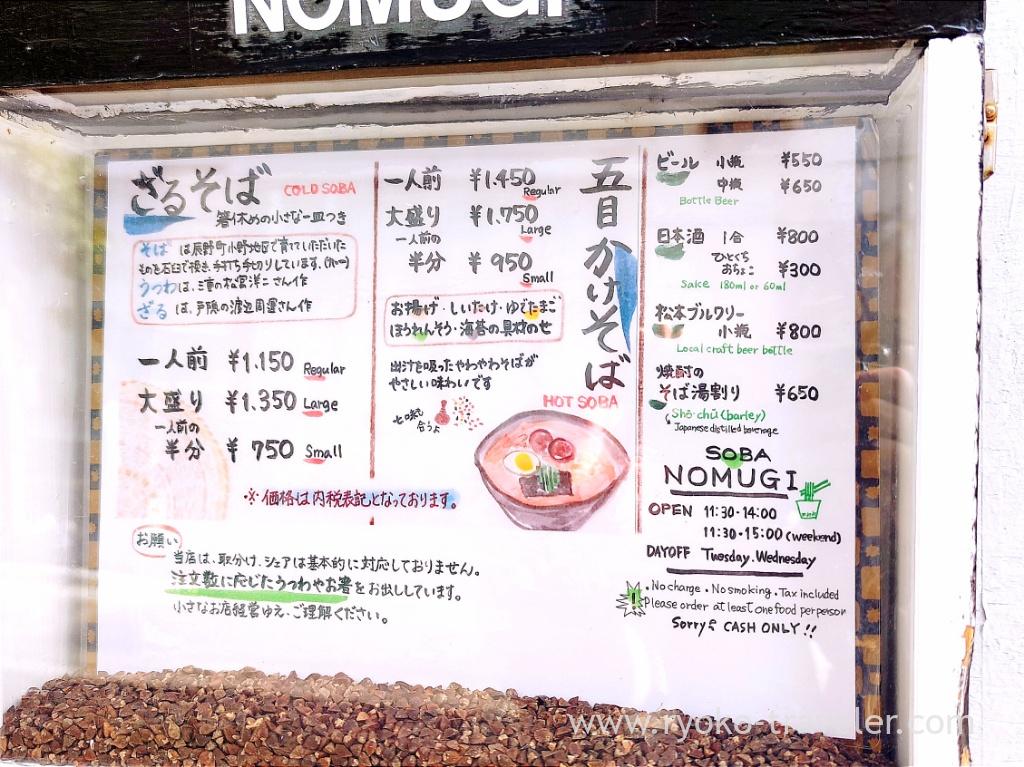 NOMUGI
ざるそば COLD SOBA
箸休めの小さな一皿つき
そば は辰野町小野地区で育てていただいた
ものを石臼で挽き、手打ち手切りしています。
うつわは、三重の松宮洋二さん作
ざる は、戸隠の渡辺周運さん作
一人前 ¥1.150 Regular
大盛り ¥1.350 Large
一人前の
半分 ¥750 Small
一人前 ¥1.450 Regular
大盛り ¥1.750 Large
一人前の
半分 ¥950 Small
お揚げ・しいたけ・ゆでたまご
ほうれんそう・海苔の具材のせ
出汁を吸ったやわやわそばが
やさしい味わいです
七味
合うよ
五目かけそば
HOT SOBA
※価格は内税表記となっております。
お願い
当店は、取分け、シェアは基本的に対応しておりません。
注文数に応じたうつわやお箸をお出ししています。
小さなお店経営ゆえ、ご理解ください。
ビール 小瓶 ¥550
中瓶 ¥650
Bottle Beer
日本酒 1合 ¥800
ひとくち
おちょこ ¥300
Sake 180ml or 60ml
松本ブルワリー
小瓶 ¥800
Local craft beer bottle
焼酎の
そば湯割り ¥650
Shō-chū (barley)
Japanese distilled beverage
SOBA
NOMUGI
OPEN 11:30-14:00
11:30-15:00 (weekend)
DAYOFF Tuesday. Wednesday
. No charge . No smoking . Tax included
! Please order at least one food per person
Sorry CASH ONLY !!
www.ryoko-traveler.com